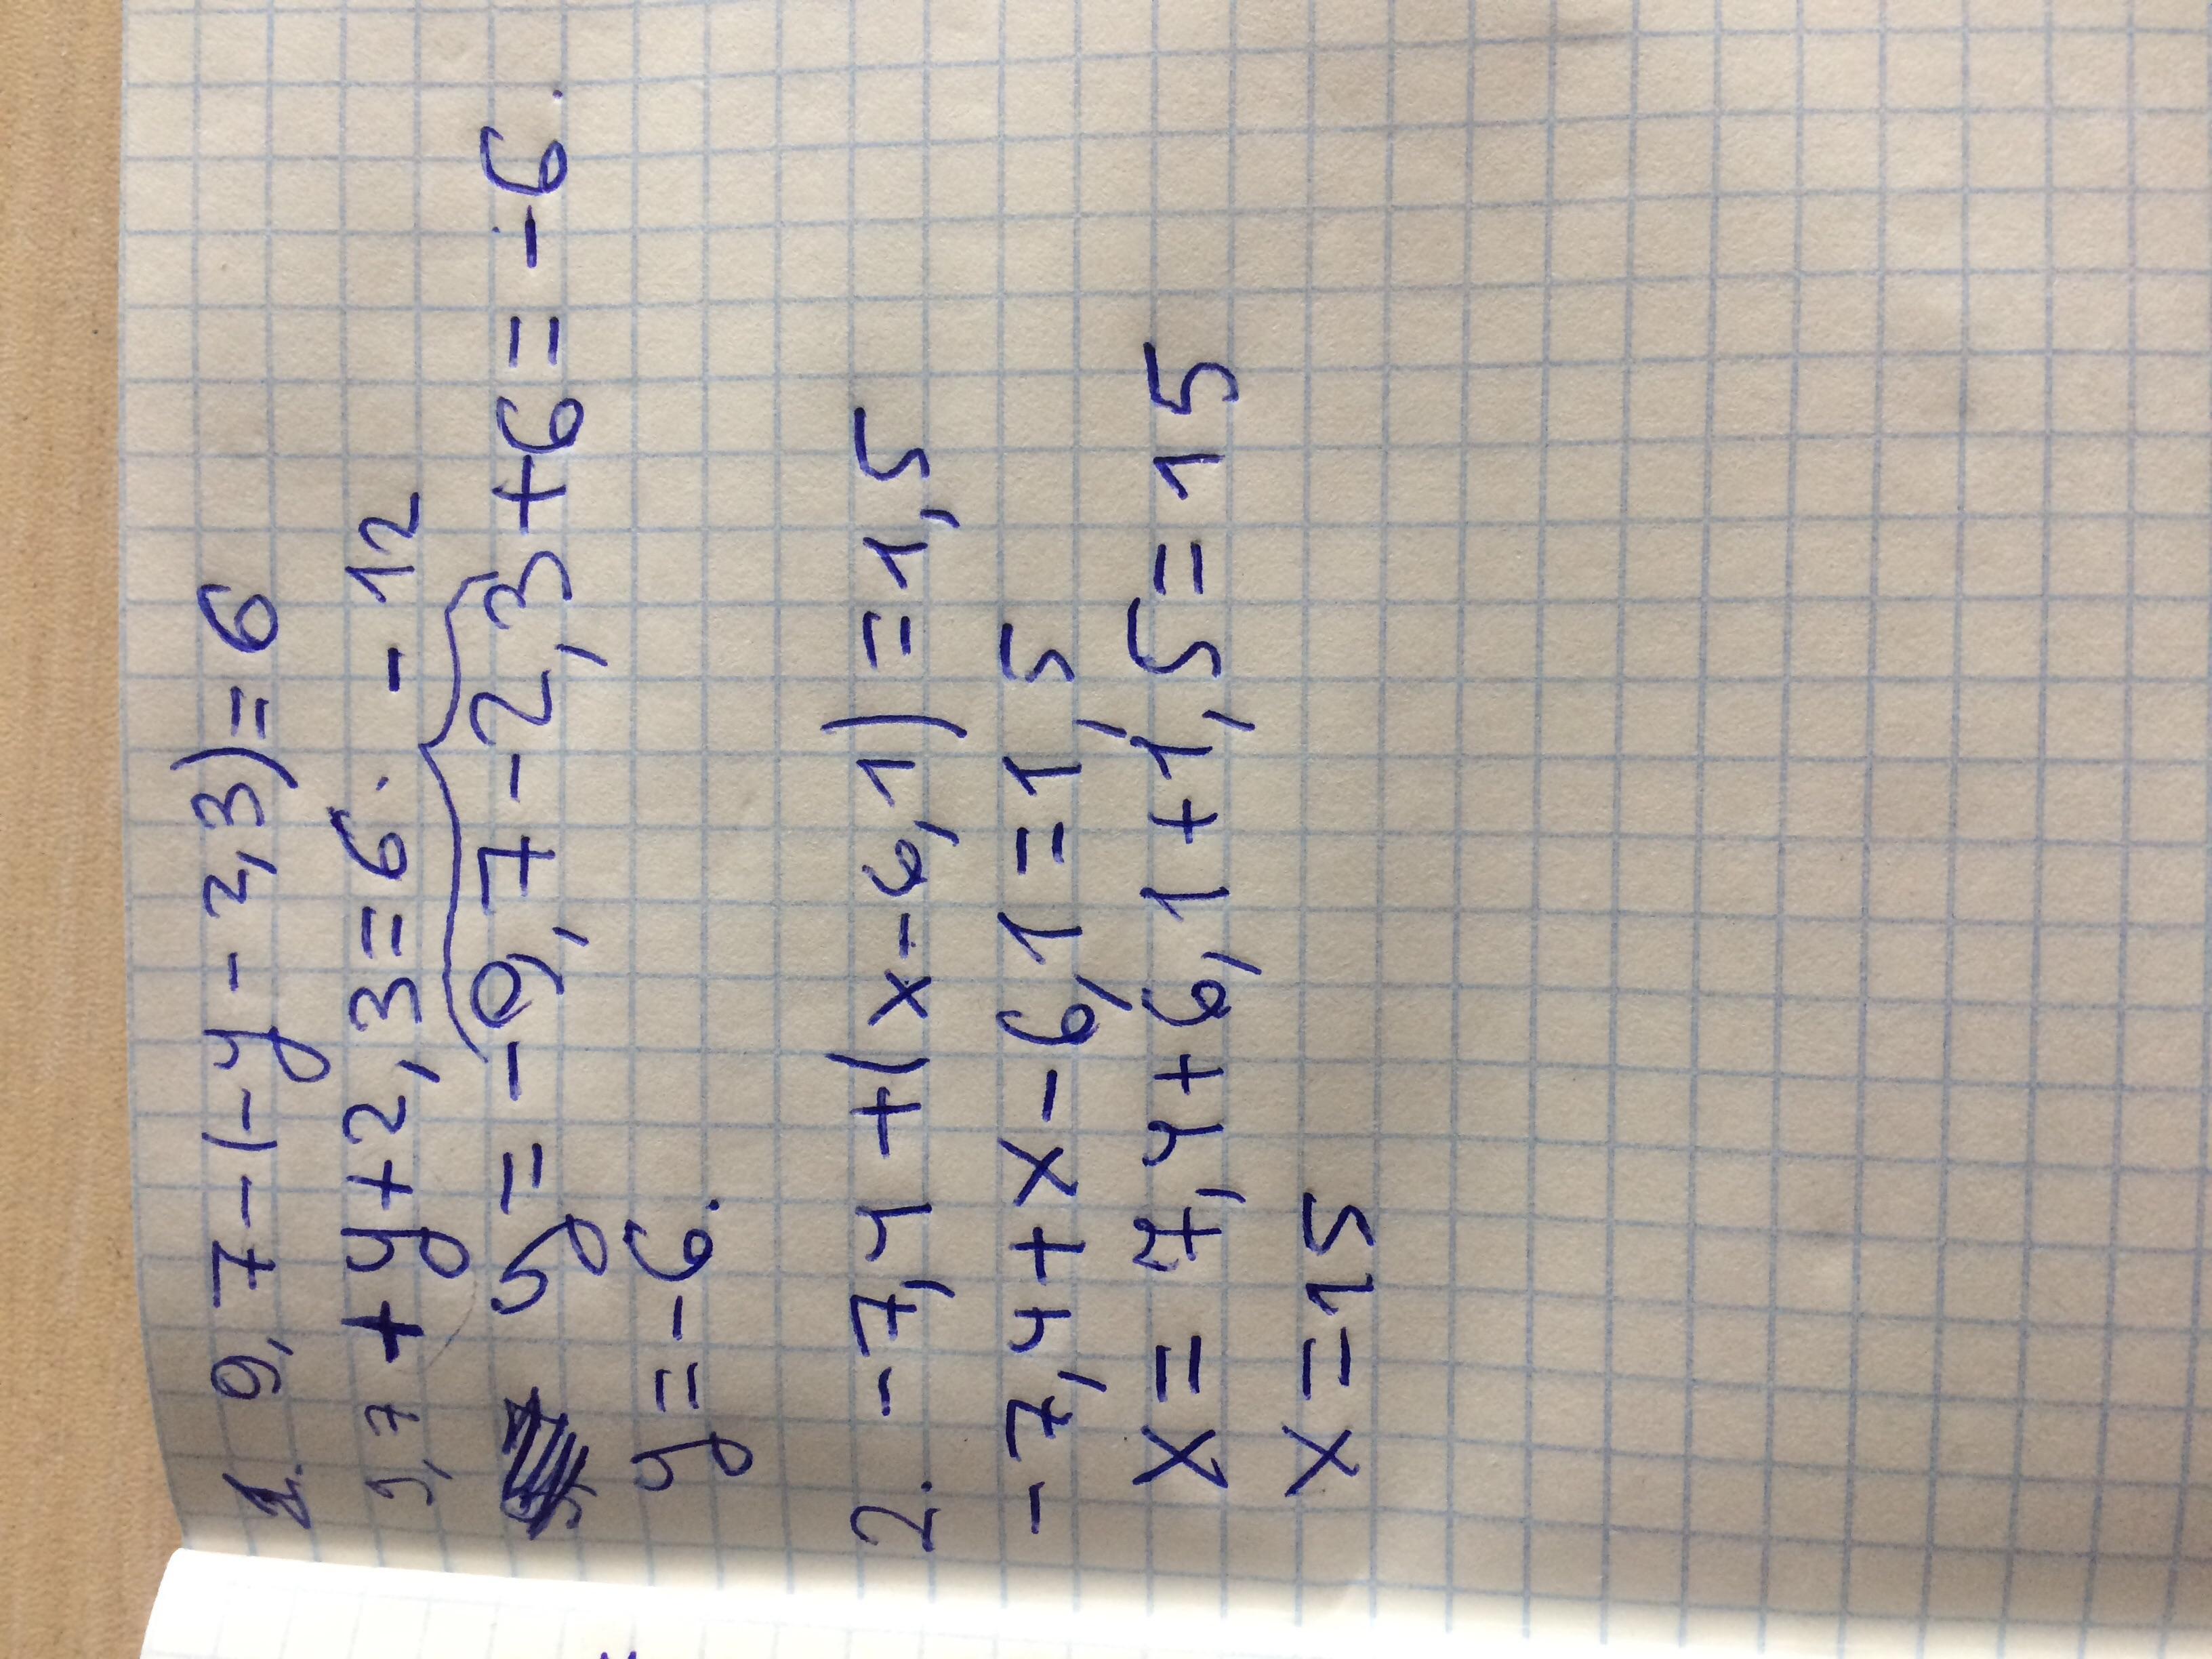 1. 9,7-(-y-2,3)=6
9,7+y+2,3=6.
-12
y=-9,7-2,3+6=-6.
y=-6.
2. -7,4+(x-6,1)=1,5
-7,4+x-6,1=1,5
x=7,4+6,1+1,5=15
x=15